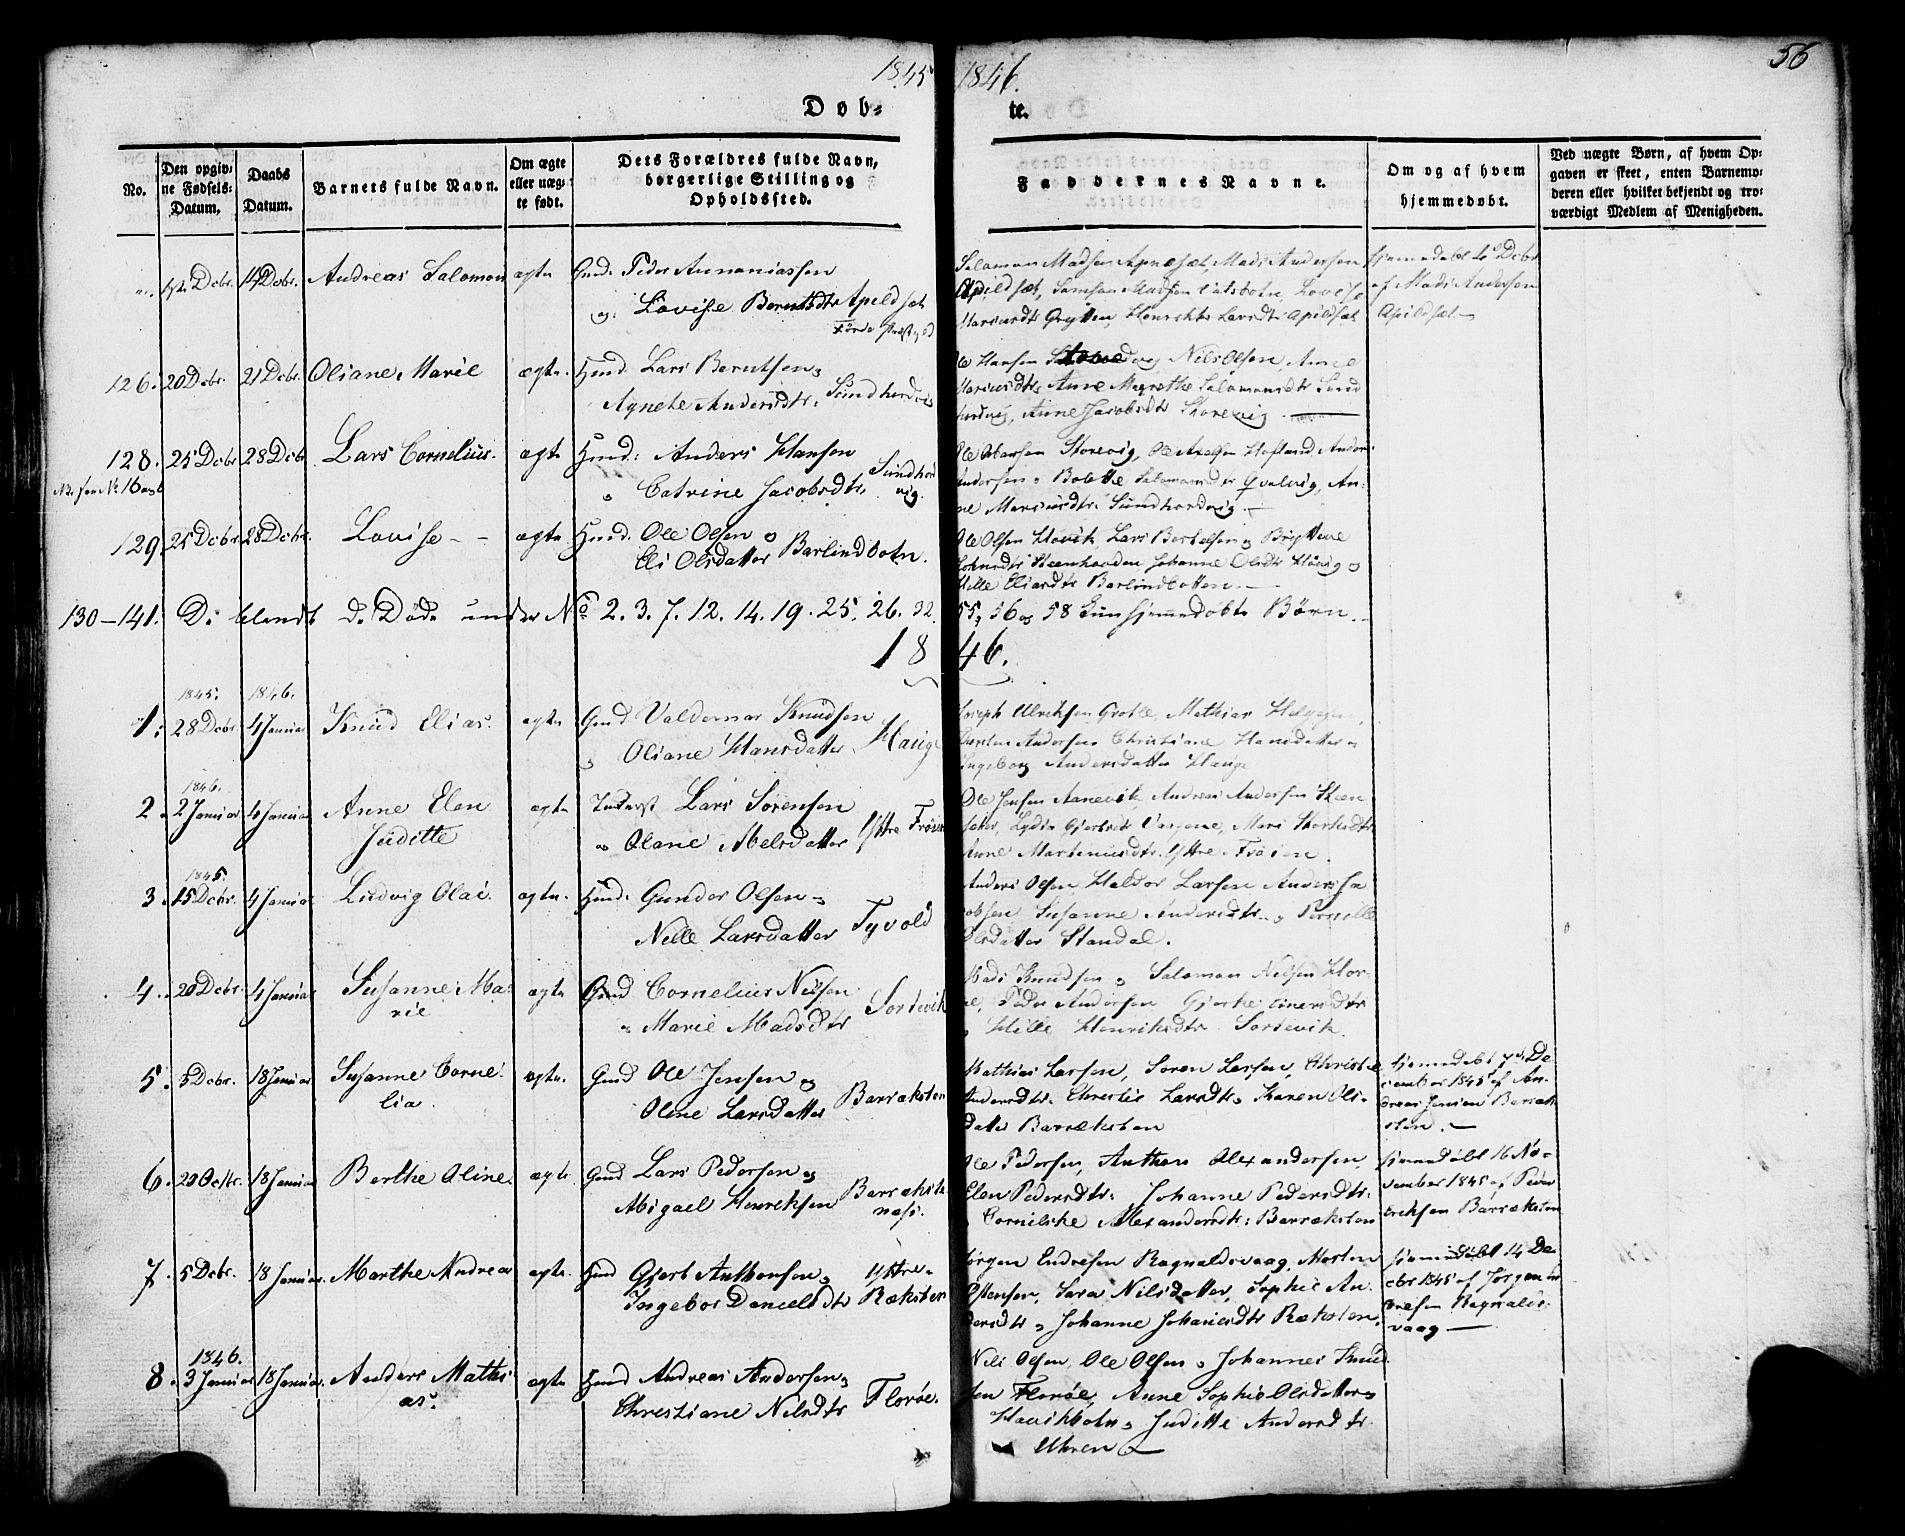 1845
1846.
56
Døb-
te.
No.
Den opgiv-
ne Fødsels-
Datum.
Daabs
Datum.
Barnets fulde Navn.
Om ægte
eller uæg-
te født.
Dets Forældres fulde Navn,
borgerlige Stilling og
Opholdssted.
Faddernes Navne.
Om og af hvem
hjemmedøbt.
Ved uægte Børn, af hvem Op-
gaven er skeet, enten Barnemo-
deren eller hvilket bekjendt og tro-
værdigt Medlem af Menigheden.
Dcbr. Dcbr. Andreas Salomon ægte Gmd. Peder Annaniassen
og Lovise Berntsdtr Apeldsæt
Førde
Salamon Madsen Apeldsæt, Mads Andersen
Apildsæt, Samson Madsen Lovise
Apildsæt
hjemmedøbt Dcbr
af Mads Andersen
Apildsæt
126. 20 Dcbr. 21 Dcbr. Oliane Marie ægte Hmd. Lars Berntsen
Agnete Andersdtr. Sundhordvig
Ole Hansen Nils Olsen, Anne
Anne Margrethe Salamonsdtr Sund
hordvig, Anne Jacobsdtr Storevig
128. 25 Dcbr 28 Dcbr Lars Cornelius. ægte Hmd: Anders Hansen
Catrine Jacobsdtr. Sundhord
vig.
Storevig, Ole Hofland, Anders
Andersen, Bolette Salamonsdtr Qvalvig, An-
ne Mariusdtr. Sundhordvig
129. 25 Dcbr. 28 Dcbr. Lovise ægte Hmd. Ole Olsen
Eli Olsdatter Barlindbotn.
Ole Olsen Høvik, Lars Bertelsen
Johanne Olsdtr Høvig
Hille Eliasdtr Barlindbotten
130-141. De blandt de Døde under No 2. 3. 7. 12. 14. 19. 25. 26. 32. 55, 56 og 58 hjemmedøbte Børn.
1846.
1. 1845. 28 Dcbr. 1846. 4 Januar Knud Elias. ægte Gmd Valdemar Knudsen
Oliane Hansdatter Hauge
Joseph Ulriksen Grotle, Mathias Helgesen,
Andersen Christiane Hansdatter
Ingeborg Andersdatter Hauge
2. 1846. 2 Januar 4 Januar Anne Elen
Juditte
ægte Inderst Lars Sørensen
Olane Abelsdatter Yttre Frøien
Ole Jensen Aanevik, Andreas Andersen
Lydia
Anne Martinusdtr. Yttre Frøien.
3. 1845. 15 Dcbr. 4 Januar Ludvig Olai. ægte. Hmd. Gunder Olsen
Nille Larsdatter Tyvold
Anders Olsen, Haldor Larsen Anders Ja
cobsen Susanne Andersdtr. Pernille
Olsdatter Standal.
4. 20 Dcbr. 4 Januar Susanne Ma-
rie
ægte Gmd Cornelius Nilsen
Marie Madsdtr Sortevik
Mads Knudsen Salamon Nilsen Hor-
ne, Peder Andersen
Hille Henriksdtr Sortevik.
5. 5 Dcbr. 18 Januar Susanne Corne-
lia.
ægte. Gmd Ole Jensen og
Oline Larsdatter Barræksten
Mathias Larsen, Søren Larsen, Christie
Andersdtr. Christie Larsdtr Karen Ols-
datter Barræksten
hjemmedøbt 7de De-
cember 1845 af An-
dreas Jensen Barræk
sten.
6. 20 Octbr. 18 Januar Berthe Oline. ægte Gmd Lars Pedersen og
Abigael Henriksen Barrækste
næs.
Ole Pedersen, Anthon Alexandersen,
Elen Pedersdtr. Johanne Pedersdtr:
Cornilske Alexandersdtr: Barræksten
hjemmedøbt 16 No-
vember 1845 af Peder
Barræksten
7. 5 Dcbr. 18 Januar. Marthe Andrea ægte. Hmd Gjert Anthonsen
Ingebor Danielsdtr Yttre-
Ræksten
Jørgen Endresen Ragnaldsvaag, Morten
Sara Nilsdatter, Sophie An-
dersdtr Johanne Johannesdtr Ræksten
hjemmedøbt 14 De-
cbr 1845 af Jørgen En
dresen Ragnalds-
vaag
8. 1846. 3 Januar 18 Januar. Anders Mathi-
as.
ægte Hmd Andreas Andersen
Christiane Nilsdtr Florøe.
Nils Olsen, Ole Olsen Johannes Knud
sen Florøe, Anne Sophie Olsdatter
Havikbotn Juditte Andersdtr.
Uhren